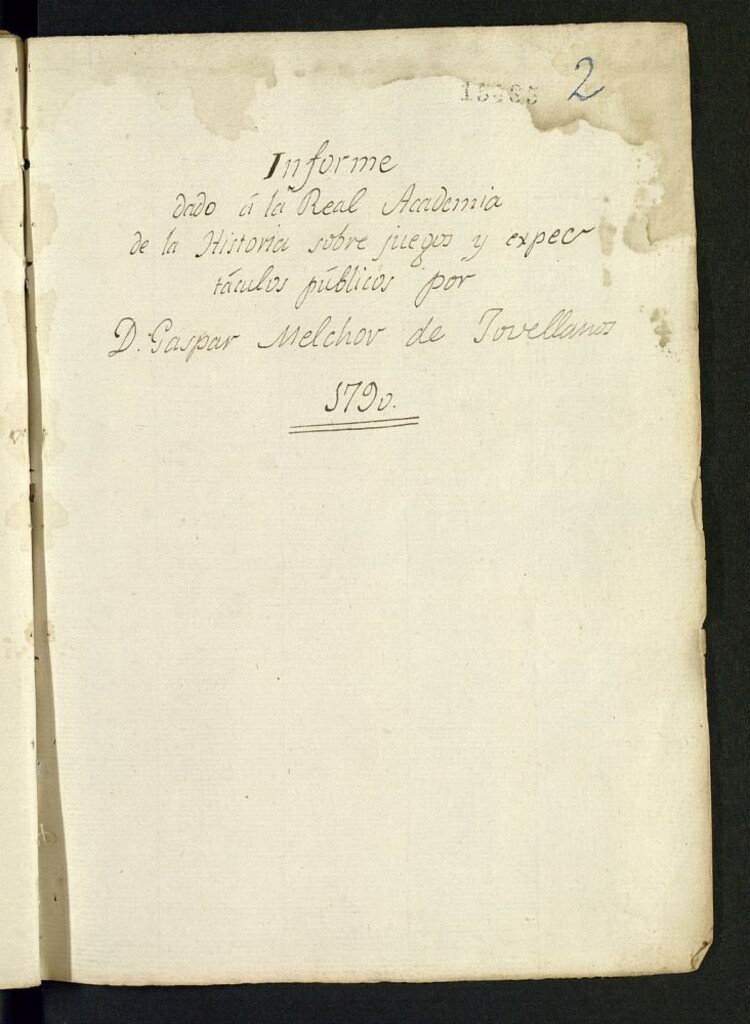 2
Informe
dado á la Real Academia
de la Historia sobre juegos y expec
táculos públicos por
D. Gaspar Melchor de Jovellanos
1790.